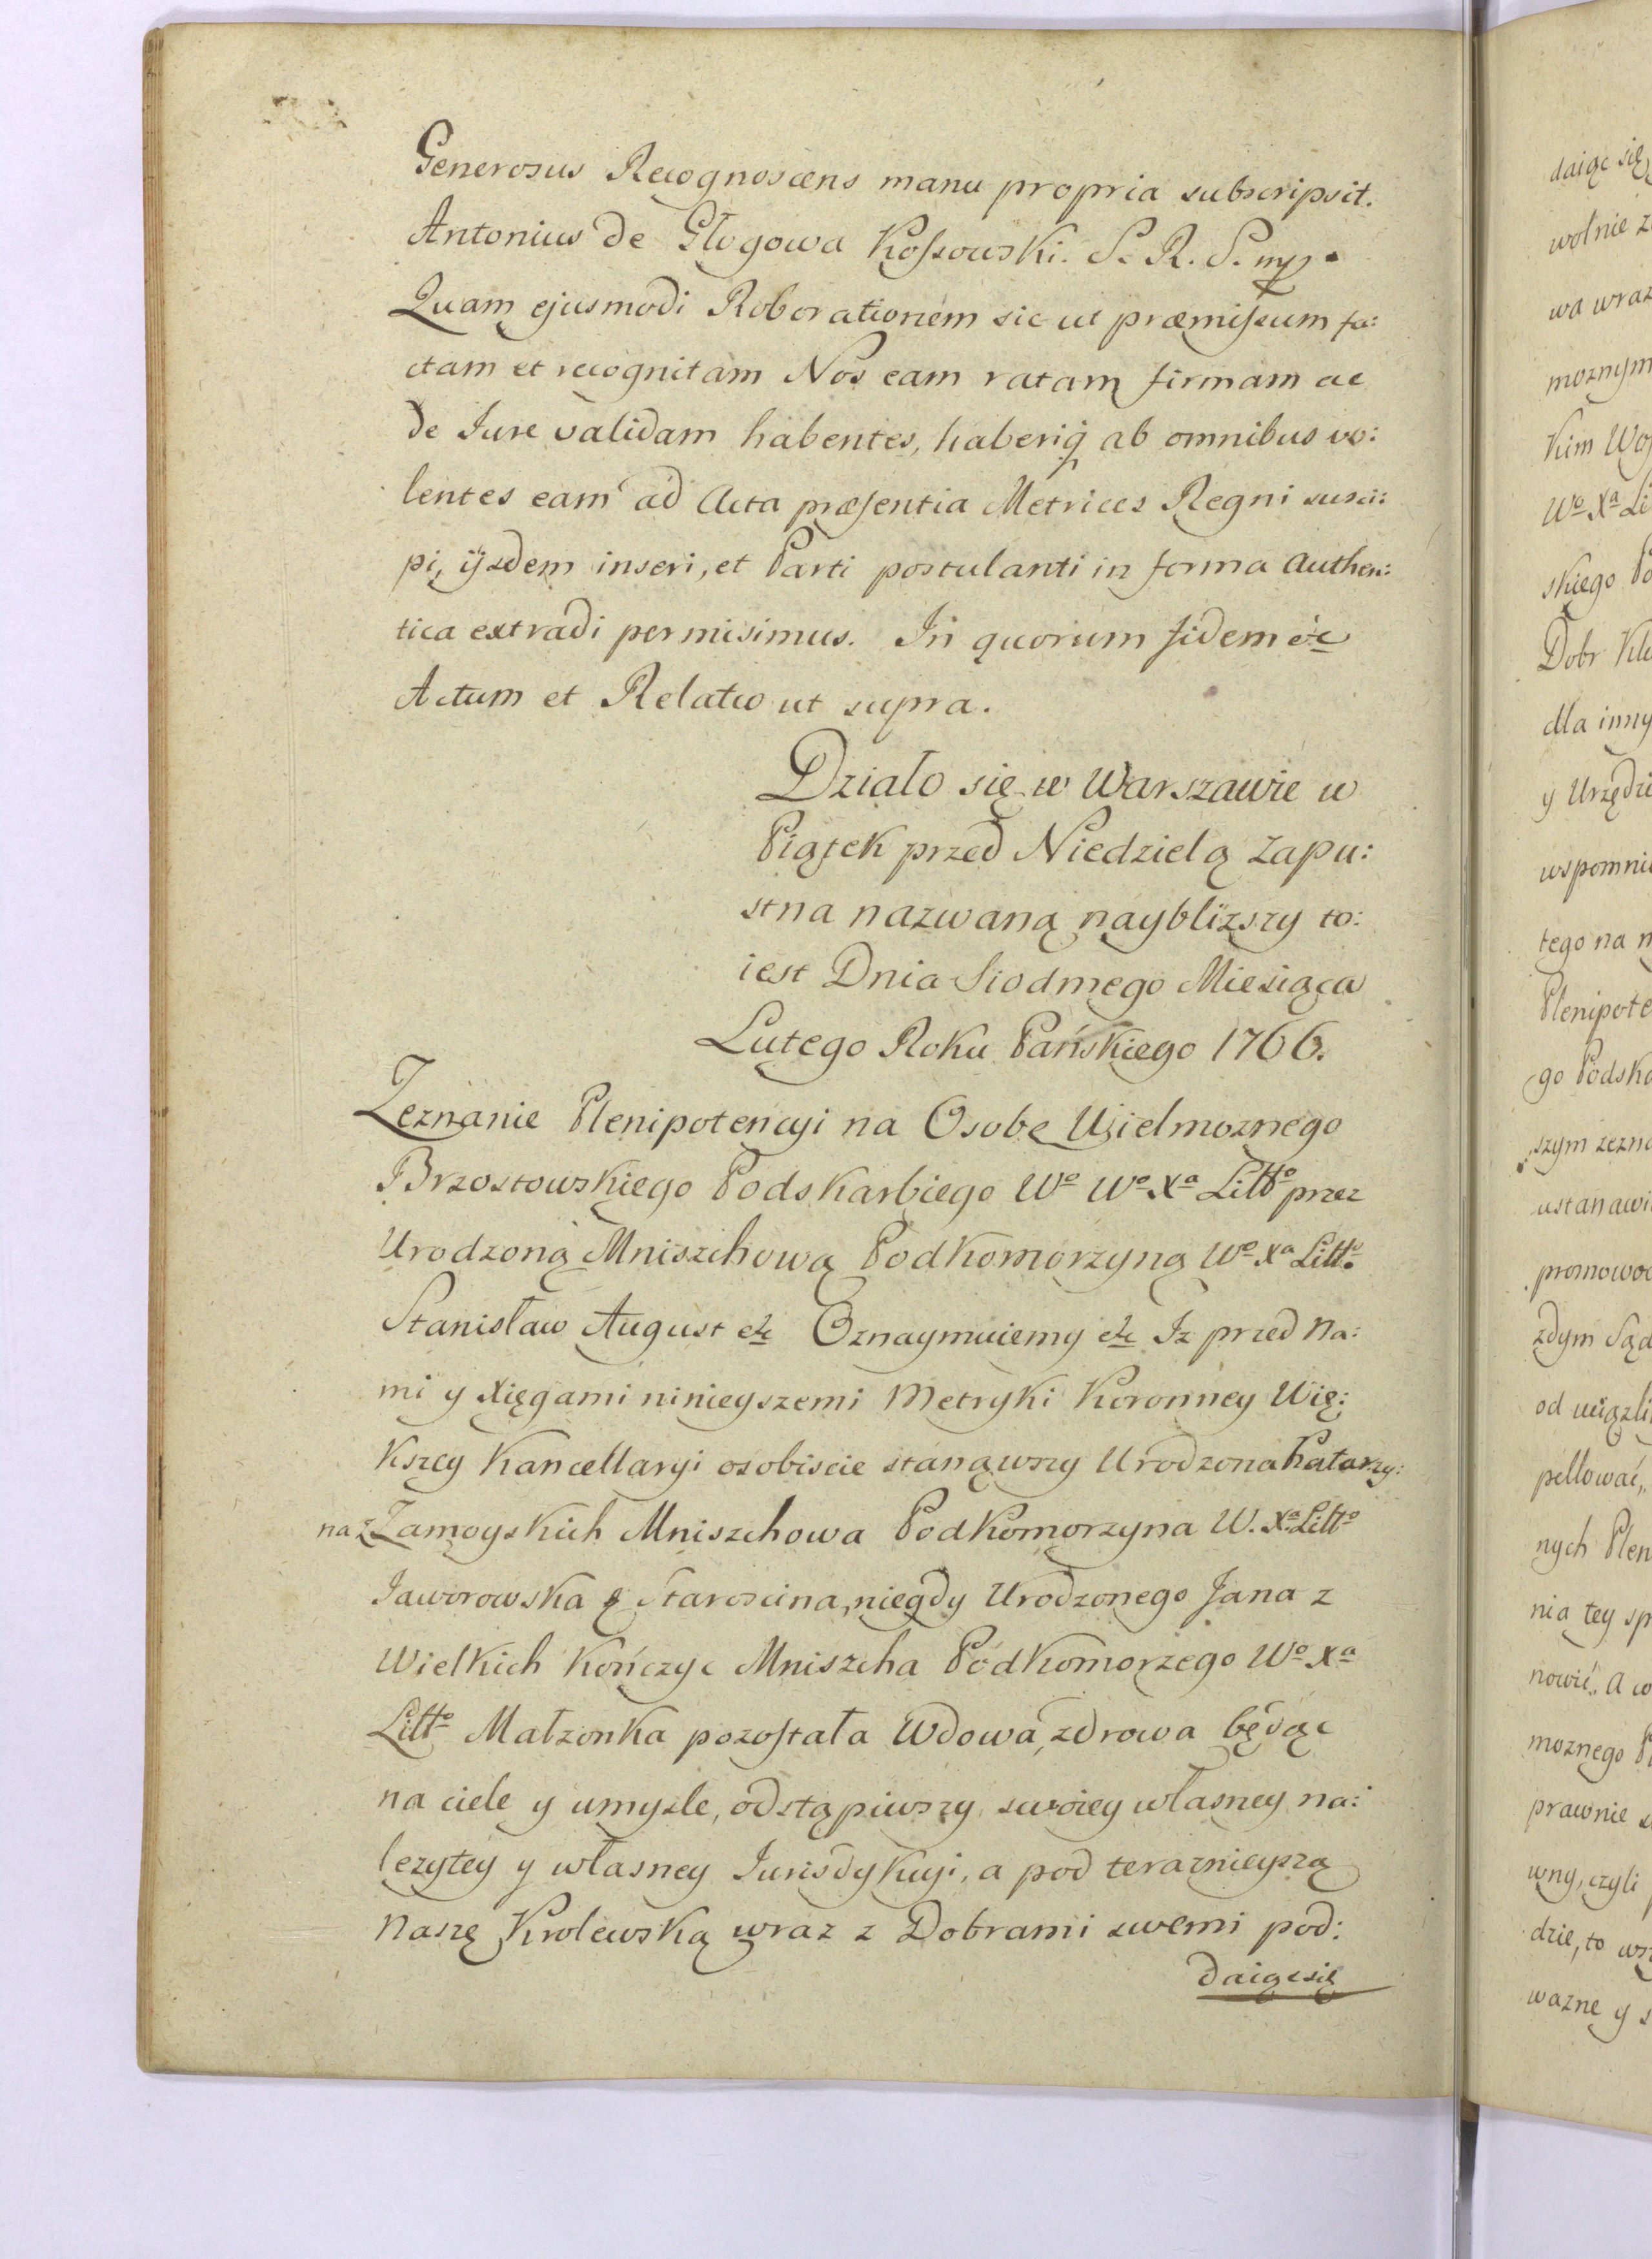 Generosus Recognoscens manu propria subscripsit.
Antonius de Głogowa Kossowski. S. R. S. mp.
Quam ejusmodi Roborationem sic ut præmissum fa:
ctam et recognitam Nos eam ratam firmam ac
de Jure validam habentes, haberiq́ ab omnibus vo:
lentes eam ad Acta præsentia Metrices Regni susci:
pi, ijsdem inseri, et Parti postulanti in forma Authen:
tica extradi permisimus. In quorum fidem etc
Actum et Relatio ut supra.
Działo się w Warszawie w
Piątek przed Niedzielą Zapu:
stna nazwaną naybliższy to:
iest Dnia Siodmego Miesiąca
Lutego Roku Pańskiego 1766.
Zeznanie Plenipotencyi na Osobę Wielmoznego
Brzostowskiego Podskarbiego Wo Wo Xa Litto przez
Urodzoną Mniszchową Podkomorzyną Wo Xa Litto
Stanisław August etc Oznaymuiemy etc Iz przed Na:
mi y Xięgami ninieyszemi Metryki Koronney Wię:
kszey Kancellaryi osobiscie stanąwszy Urodzona Katarzy:
na z Zamoyskich Mniszchowa Podkomorzyna W. Xa Litto
Jaworowska Staroscina, niegdy Urodzonego Jana z
Wielkich Kończyc Mniszcha Podkomorzego Wo Xa
Litto Małzonka pozostała Wdowa, zdrowa będąc
na ciele y umysle, odstąpiwszy swoiey własney na:
lezytey y własney Jurisdykcyi, a pod teraznieyszą
Naszę Krolewską wraz z Dobrami swemi pod:
daiąc się
daiąc się
wolnie z
wa wraz
moznym
kim
Wo Xa Li
skiego
Dobr
dla inny
y Urzędz
wspomni
tego na
Plenipote
go Podska
szym zezn
ustanawi
promowo
zdym Sąd
od
pellować,
nych Plen
nia tey sp
nowić. A
moznego
prawnie
wny, czyli
dzie, to
wazne y